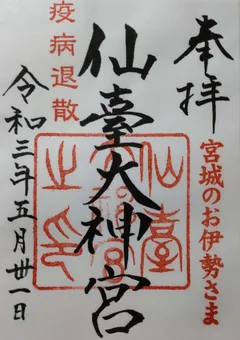 奉拝
宮城のお伊勢さま
仙臺大神宮
疫病退散
令和三年五月卅一日
仙臺大神宮之印